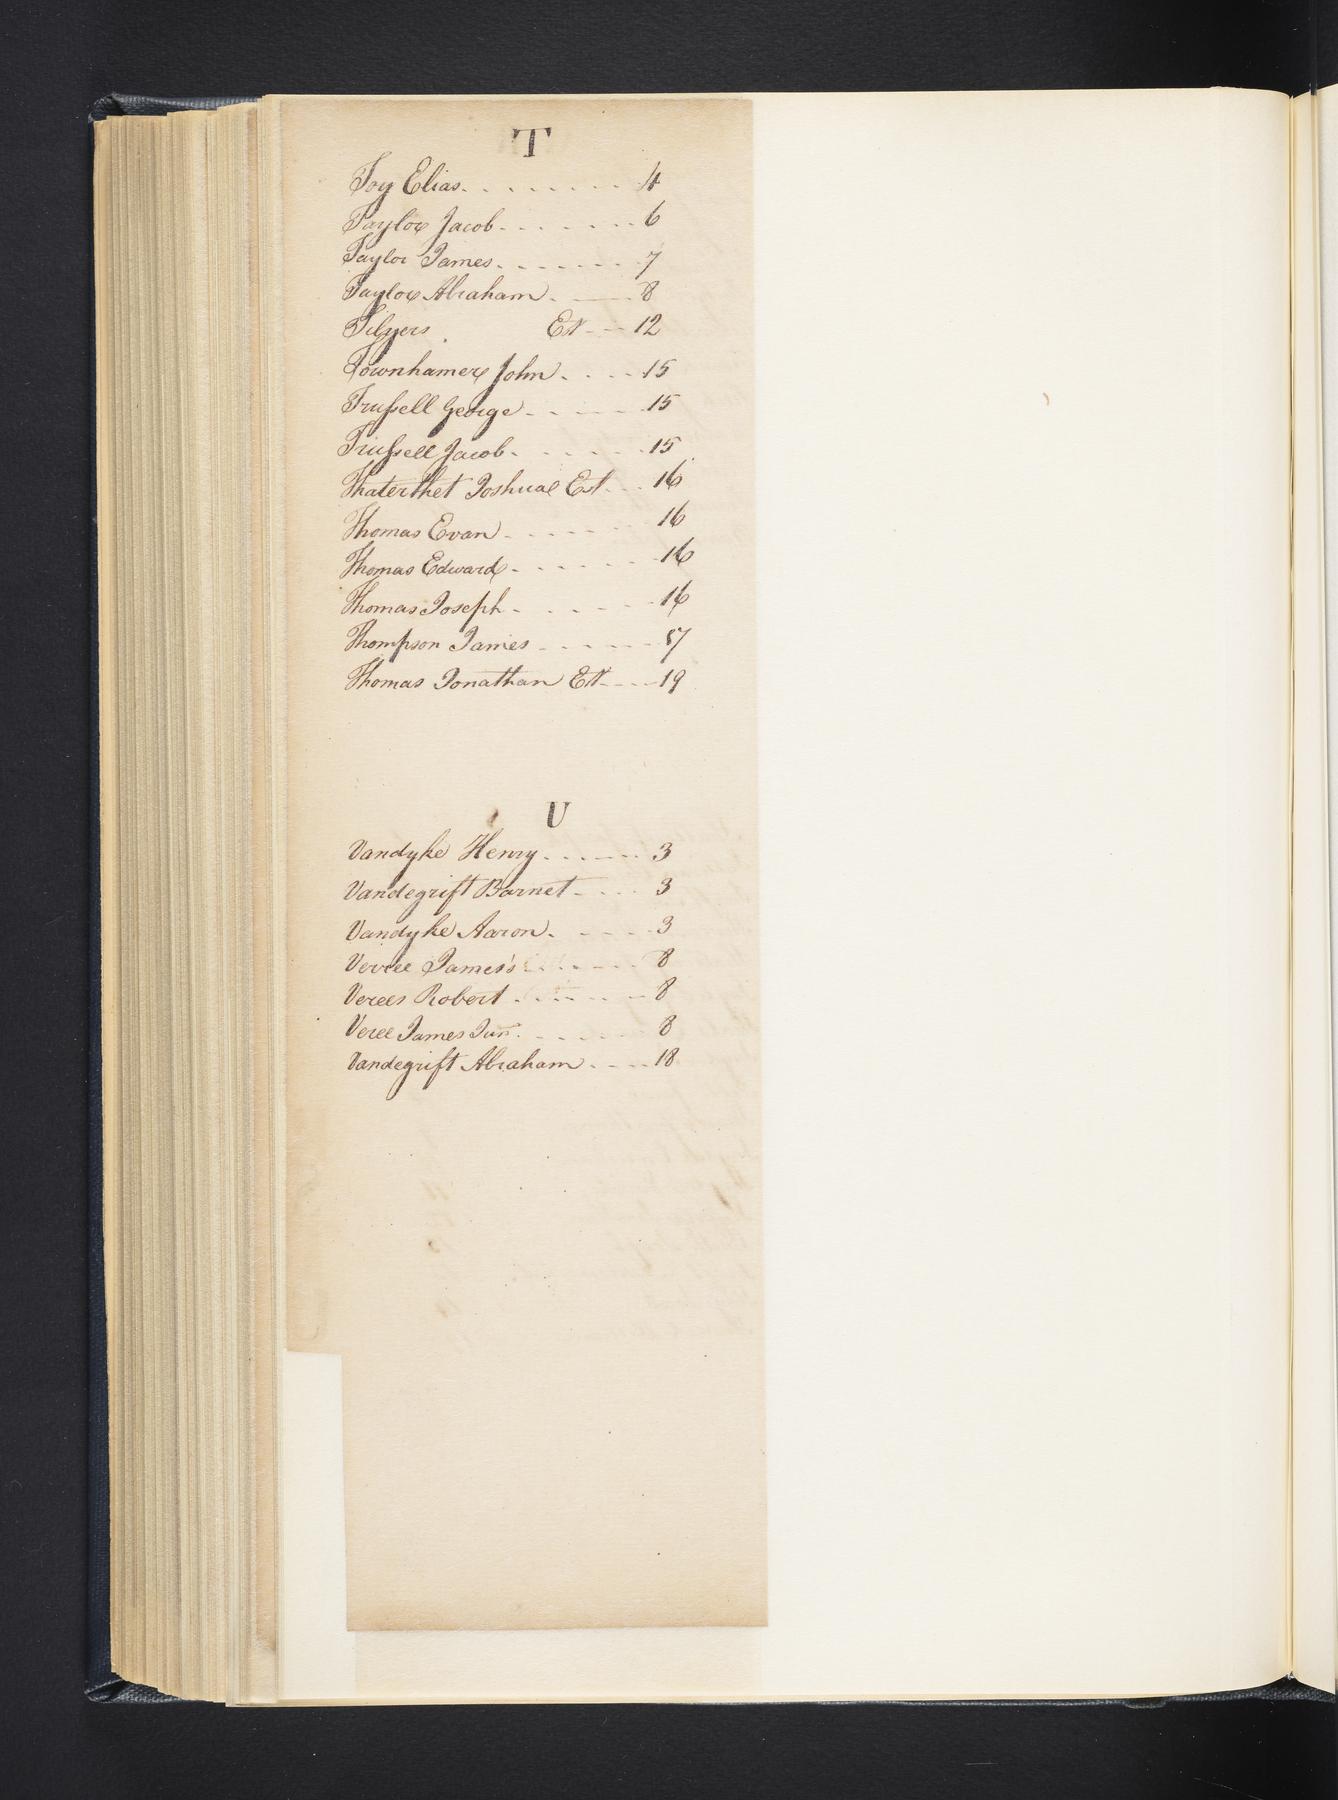 T
Toy Elias. . . . . . . . . 4
Taylor Jacob - . . . . . . 6
Taylor James. - . . . . . 7
Taylor Abraham . - - - 8
Tilyers Est - - - 12
Townhamer John . . . . 15
Trussell George - . . . . . 15
Trussell Jacob - . . . . . 15
Thaterthet Joshua Est . . . 16
Thomas Evan - . . . . . 16
Thomas Edward - . . . . . 16
Thomas Joseph - . . . . . 16
Thompson James - . . . . 17
Thomas Jonathan Est - - - 19
U
Vandyke Henry . . . . . . 3
Vandegrift Barnet - . . . 3
Vandyke Aaron . - - - - 3
Verree James's . . . . . 8
Verees Robert . . . . . . 8
Veree James Junr. . . . . . 8
Vandegrift Abraham . . . . 18